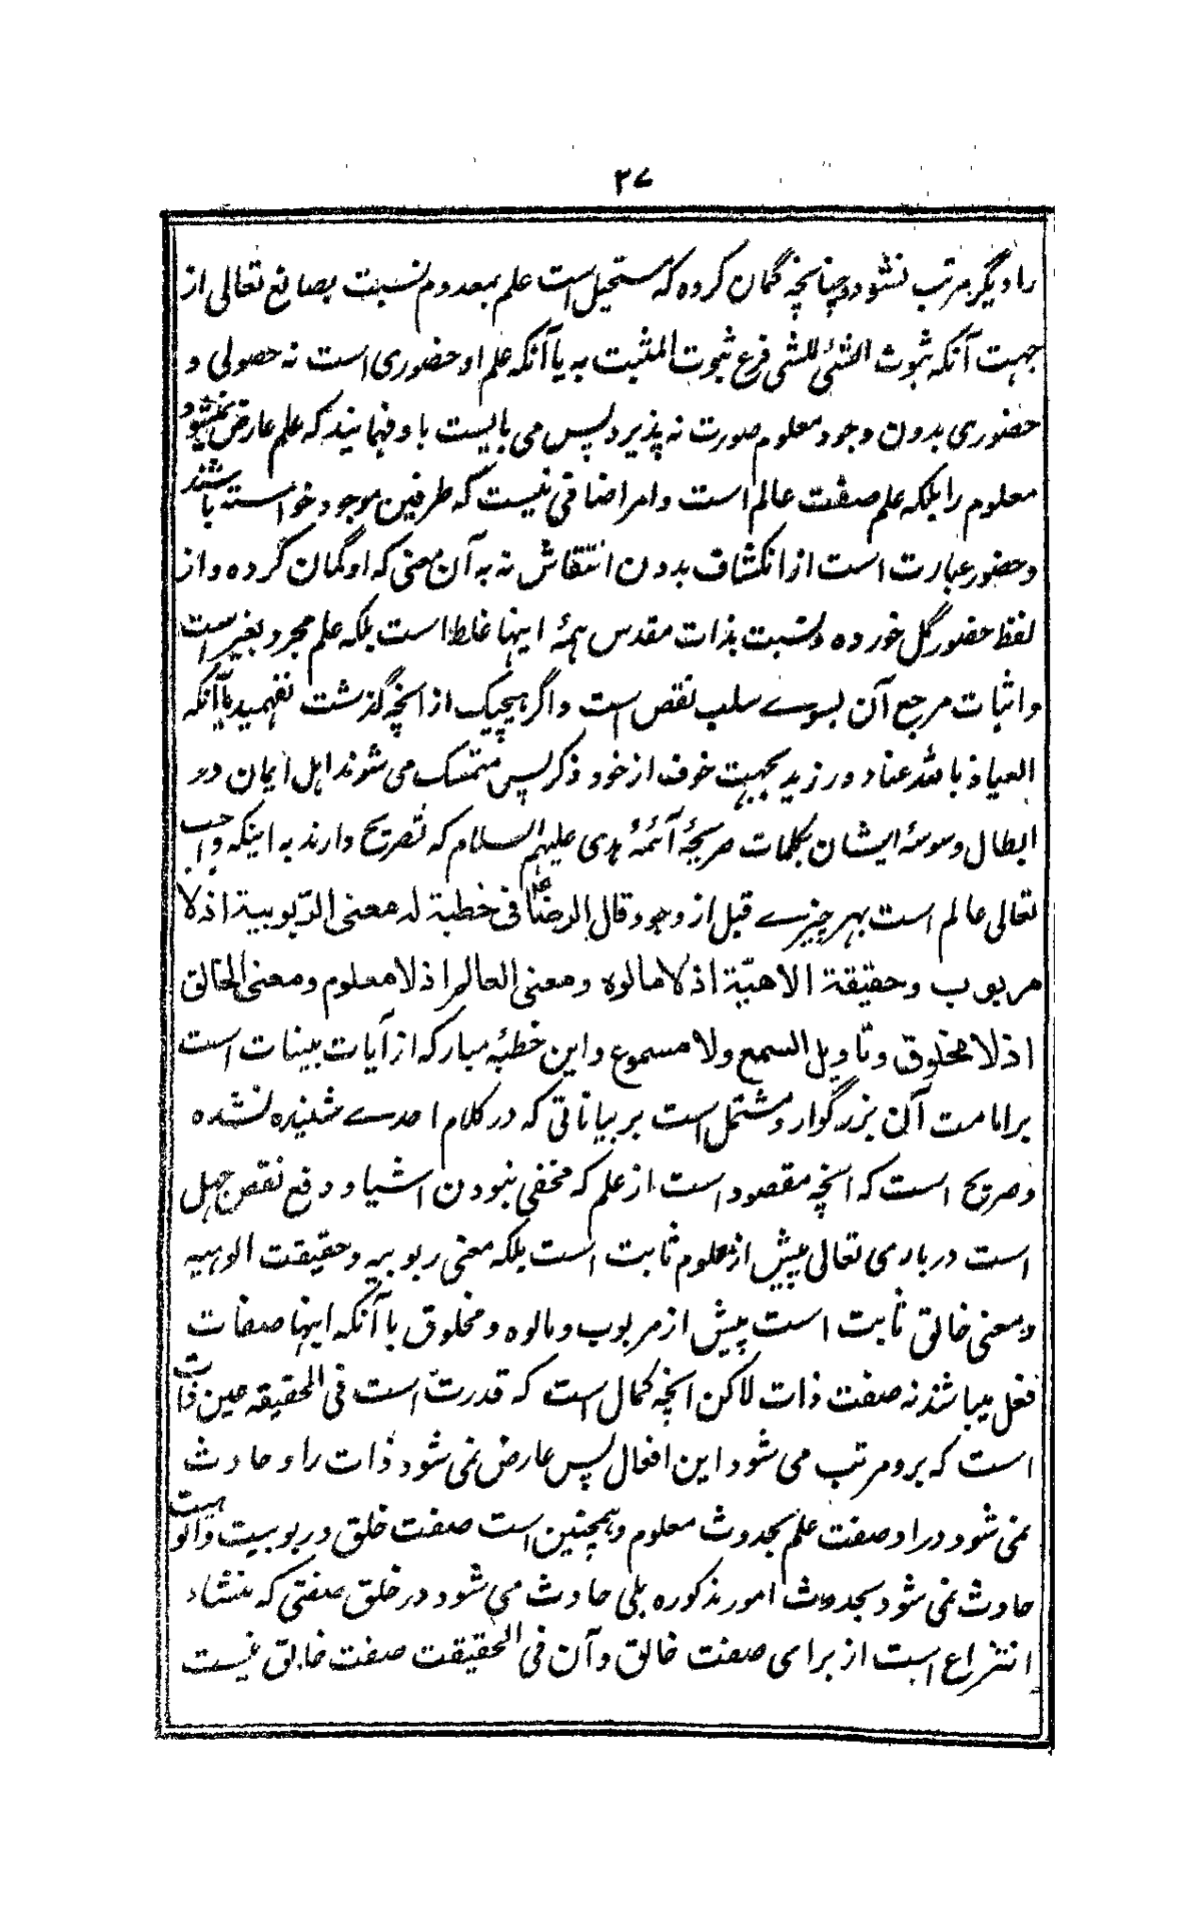 ۳۷
را و دیگر مرتب نشود و چنانچه گمان کرده که مستحیل است علم بمعدوم نسبت بصانع تعالی از
جهت آنکه ثبوت الشئ للشی فرع ثبوت المثبت به یا آنکه علم او حضوری است نه حصولی و
حضوری بدون وجود معلوم صورت نه پذیرد پس می بایست باو فهمانید که علم عارض نمیشود
معلوم را بلکه علم صفت عالم است و امر اضافی نیست که طرفین موجود خواسته باشند
و حضور عبارت است از انکشاف بدون انتقاش نه به آن معنی که او گمان کرده و از
لفظ حضور گل خورده و نسبت بذات مقدس همهٔ اینها غلط است بلکه علم مجرد تعبیر است
و اثبات مرجع آن بسوے سلب نقص است و اگر هیچیک از انچه گذشت نفهمید یا آنکه
العیاذ بالله عناد ورزید بجهت خوف از خود ذکر پس متمسک می شوند اهل ایمان در
ابطال وسوسهٔ ایشان بکلمات صریحهٔ آئمهٔ هدی علیهم السلام که تصریح دارند به اینکه واجب
تعالی عالم است بهر چیزے قبل از وجود قال الرضا ع فی خطبة له معنی الربوبیة اذ لا
مربوب و حقیقة الالهیّة اذ لا مالوه و معنی العالم اذ لا معلوم و معنی الخالق
اذ لا مخلوق و تاویل السمع ولا مسموع و این خطبهٔ مبارکه از آیات بینات است
بر امامت آن بزرگوار و مشتمل است بر بیاناتی که در کلام احدے شنیده نشده
و صریح است که انچه مقصود است از علم که مخفی نبودن اشیا و دفع نقص جهل
است در باری تعالی پیش از معلوم ثابت است بلکه معنی ربوبیه و حقیقت الوهیه
و معنی خالق ثابت است پیش از مربوب و مالوه و مخلوق با آنکه اینها صفات
فعل میباشند نه صفت ذات لاکن انچه کمال است که قدرت است فی الحقیقه عین ذات
است که برو مرتب می شود این افعال پس عارض نمی شود ذات را و حادث
نمی شود در او صفت علم بحدوث معلوم و همچنین است صفت خلق و ربوبیت و الوهیت
حادث نمی شود بحدوث امور مذکوره بلی حادث می شود در خلق صفتی که منشاء
انتزاع است از برای صفت خالق و آن فی الحقیقت صفت خالق نیست